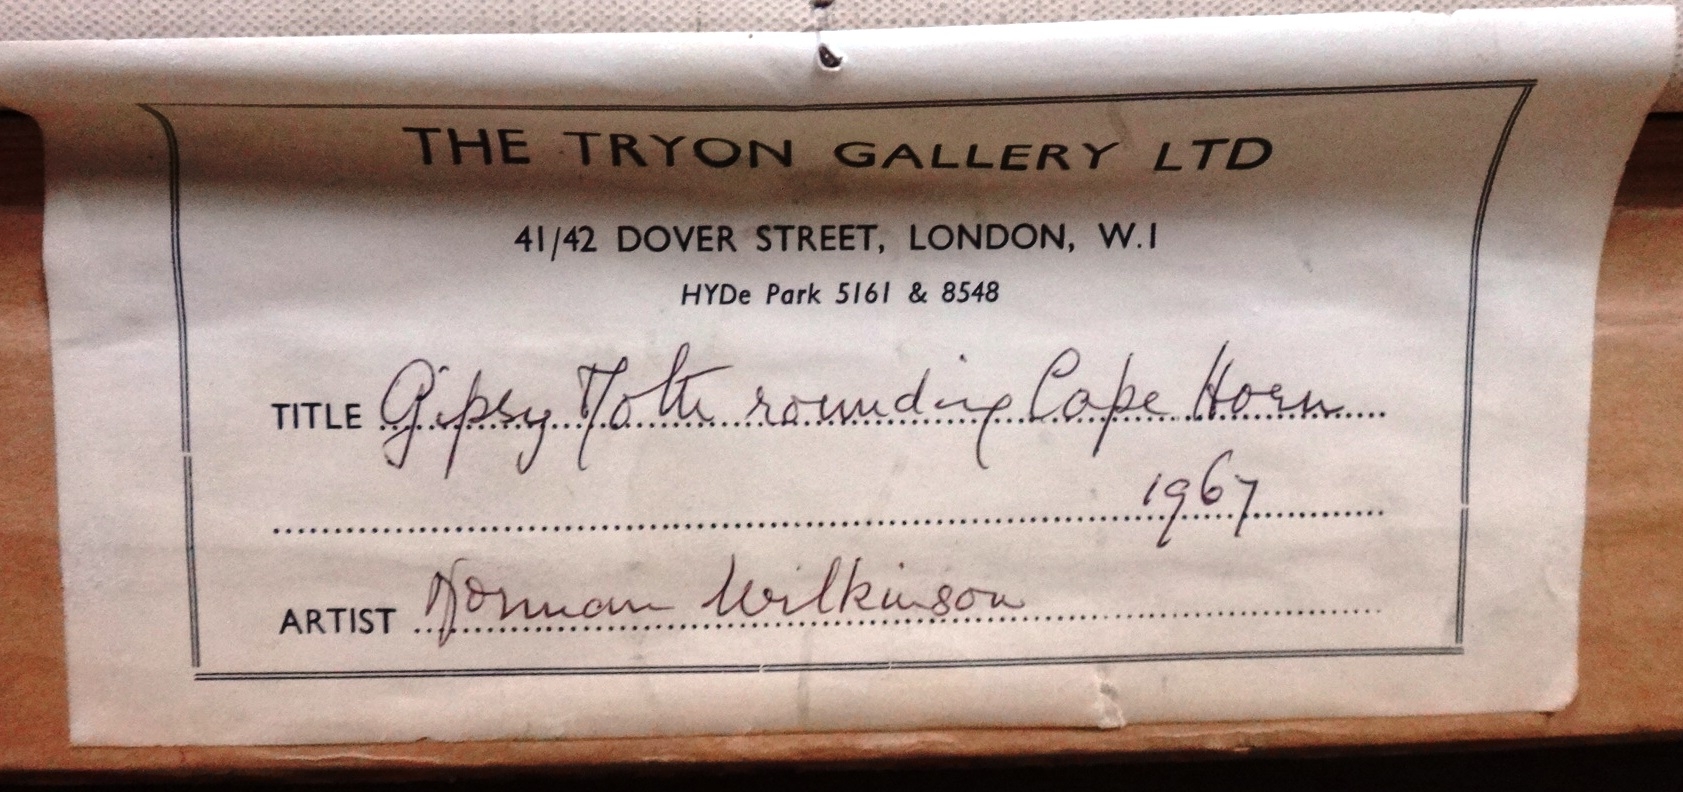 THE TRYON GALLERY LTD
41/42 DOVER STREET, LONDON, W.1
HYDe Park 5161 & 8548
TITLE Gipsy Moth rounding Cape Horn
1967
ARTIST Norman Wilkinson